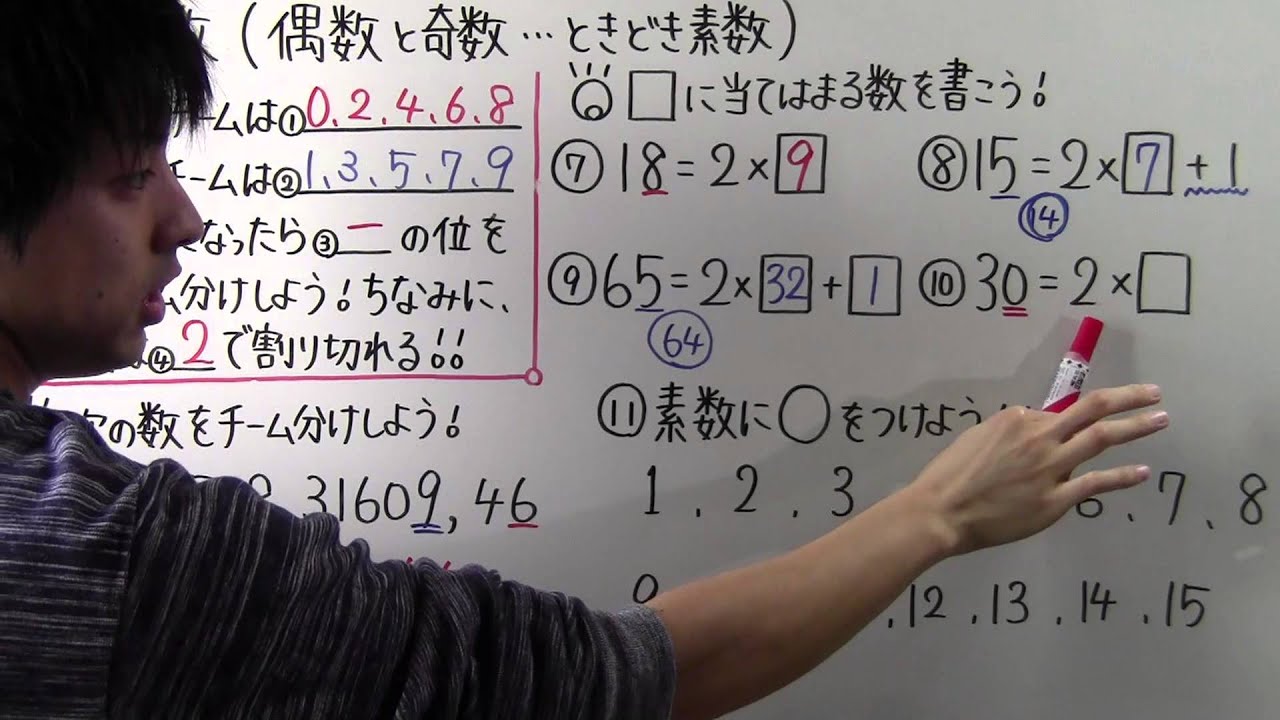 数(偶数と奇数…ときどき素数)
チームは①0、2、4、6、8
チームは②1、3、5、7、9
なったら③一の位を
分けしよう!ちなみに、
④2で割り切れる!!
次の数をチーム分けしよう!
31609,46
□に当てはまる数を書こう!
⑦18=2×9
⑧15=2×7+1
14
⑨65=2×32+1
64
⑩30=2×□
⑪素数に○をつけよう
1.2.3 6.7.8
9 .12.13.14.15